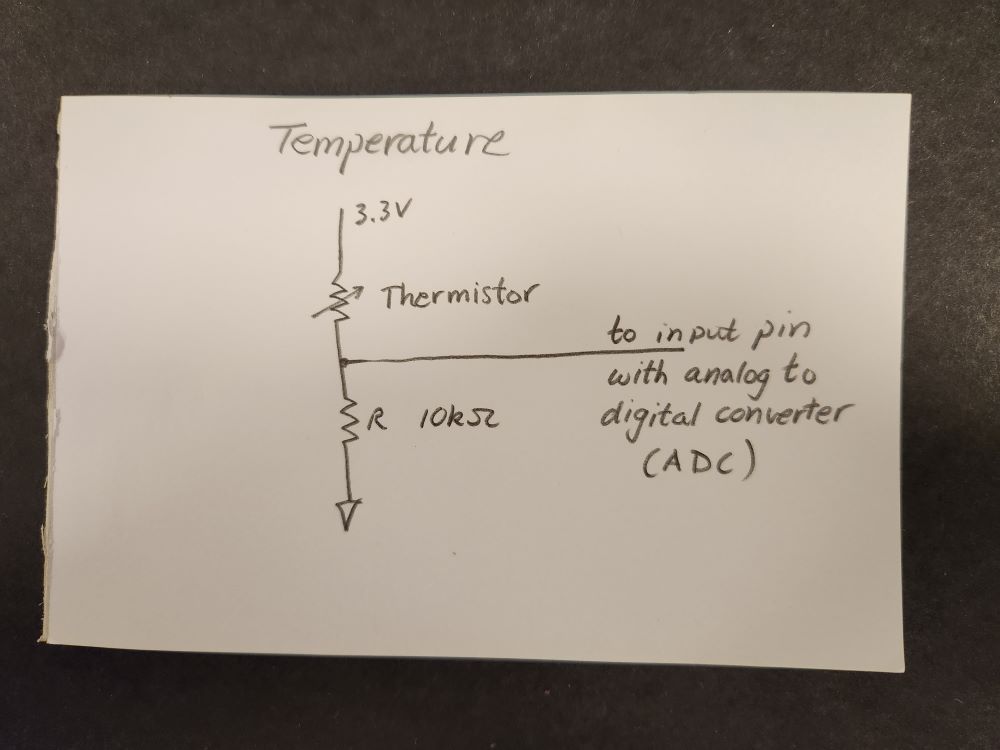 Temperature
3.3V
Thermistor
to input pin
with analog to
digital converter
(ADC)
R 10kΩ